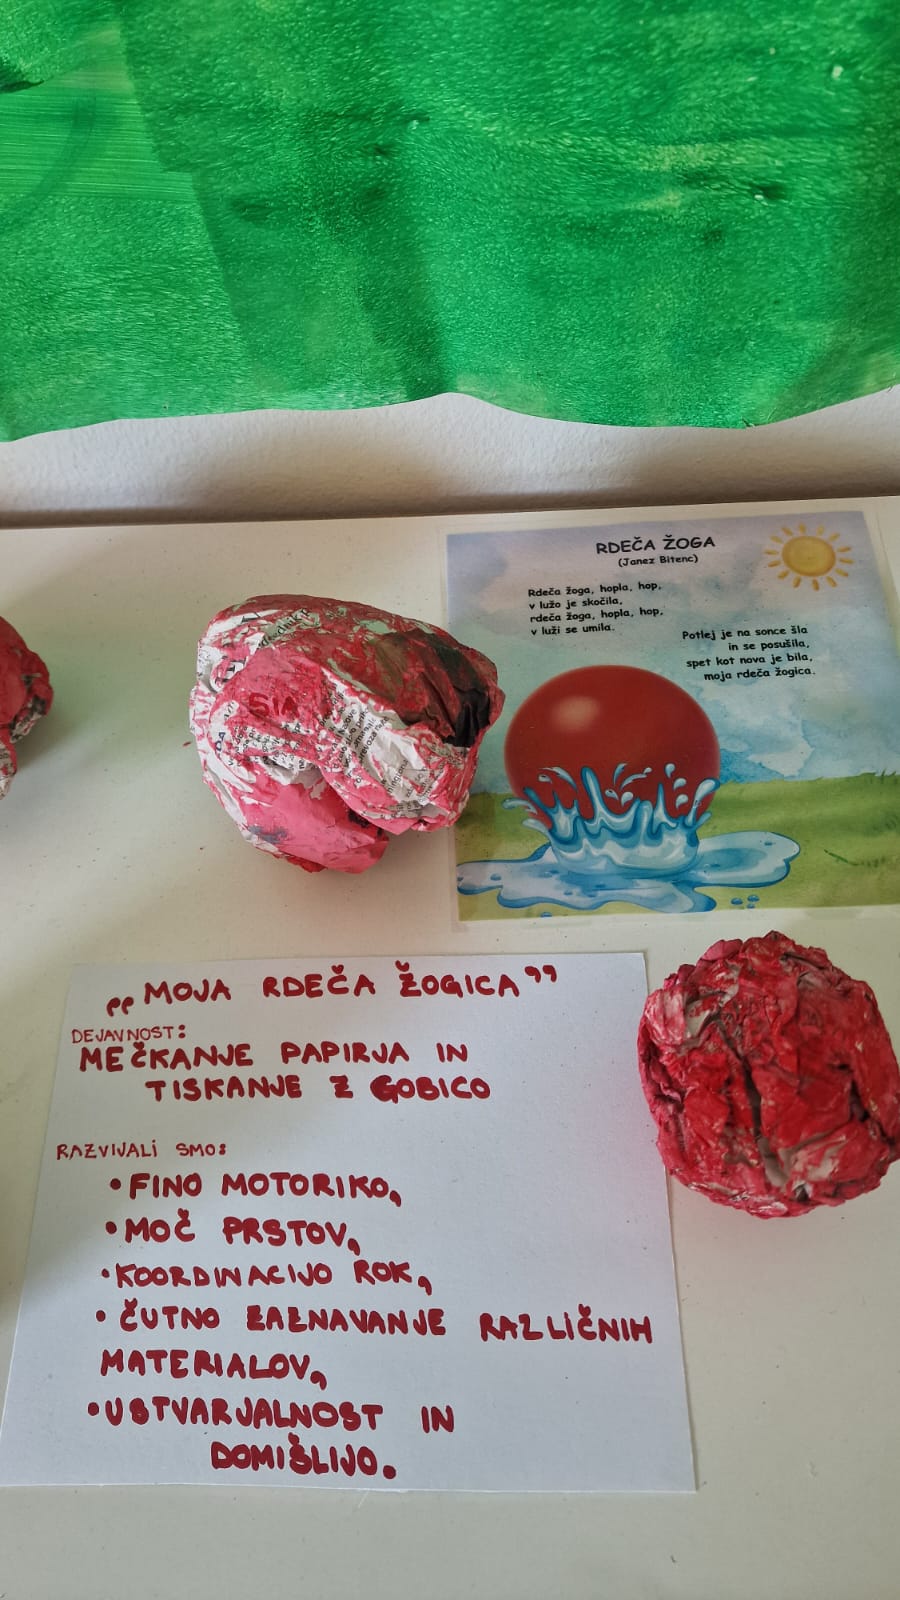 RDEČA ŽOGA
(Janez Bitenc)
Rdeča žoga, hopla, hop,
v lužo je skočila,
rdeča žoga, hopla, hop,
v luži se umila.
Potlej je na sonce šla
in se posušila,
spet kot nova je bila,
moja rdeča žogica.
SIA
„MOJA RDEČA ŽOGICA”
DEJAVNOST:
MEČKANJE PAPIRJA IN
TISKANJE Z GOBICO
RAZVIJALI SMO:
•FINO MOTORIKO,
•MOČ PRSTOV,
•KOORDINACIJO ROK,
•ČUTNO ZAZNAVANJE RAZLIČNIH
MATERIALOV,
•USTVARJALNOST IN
DOMIŠLIJO.